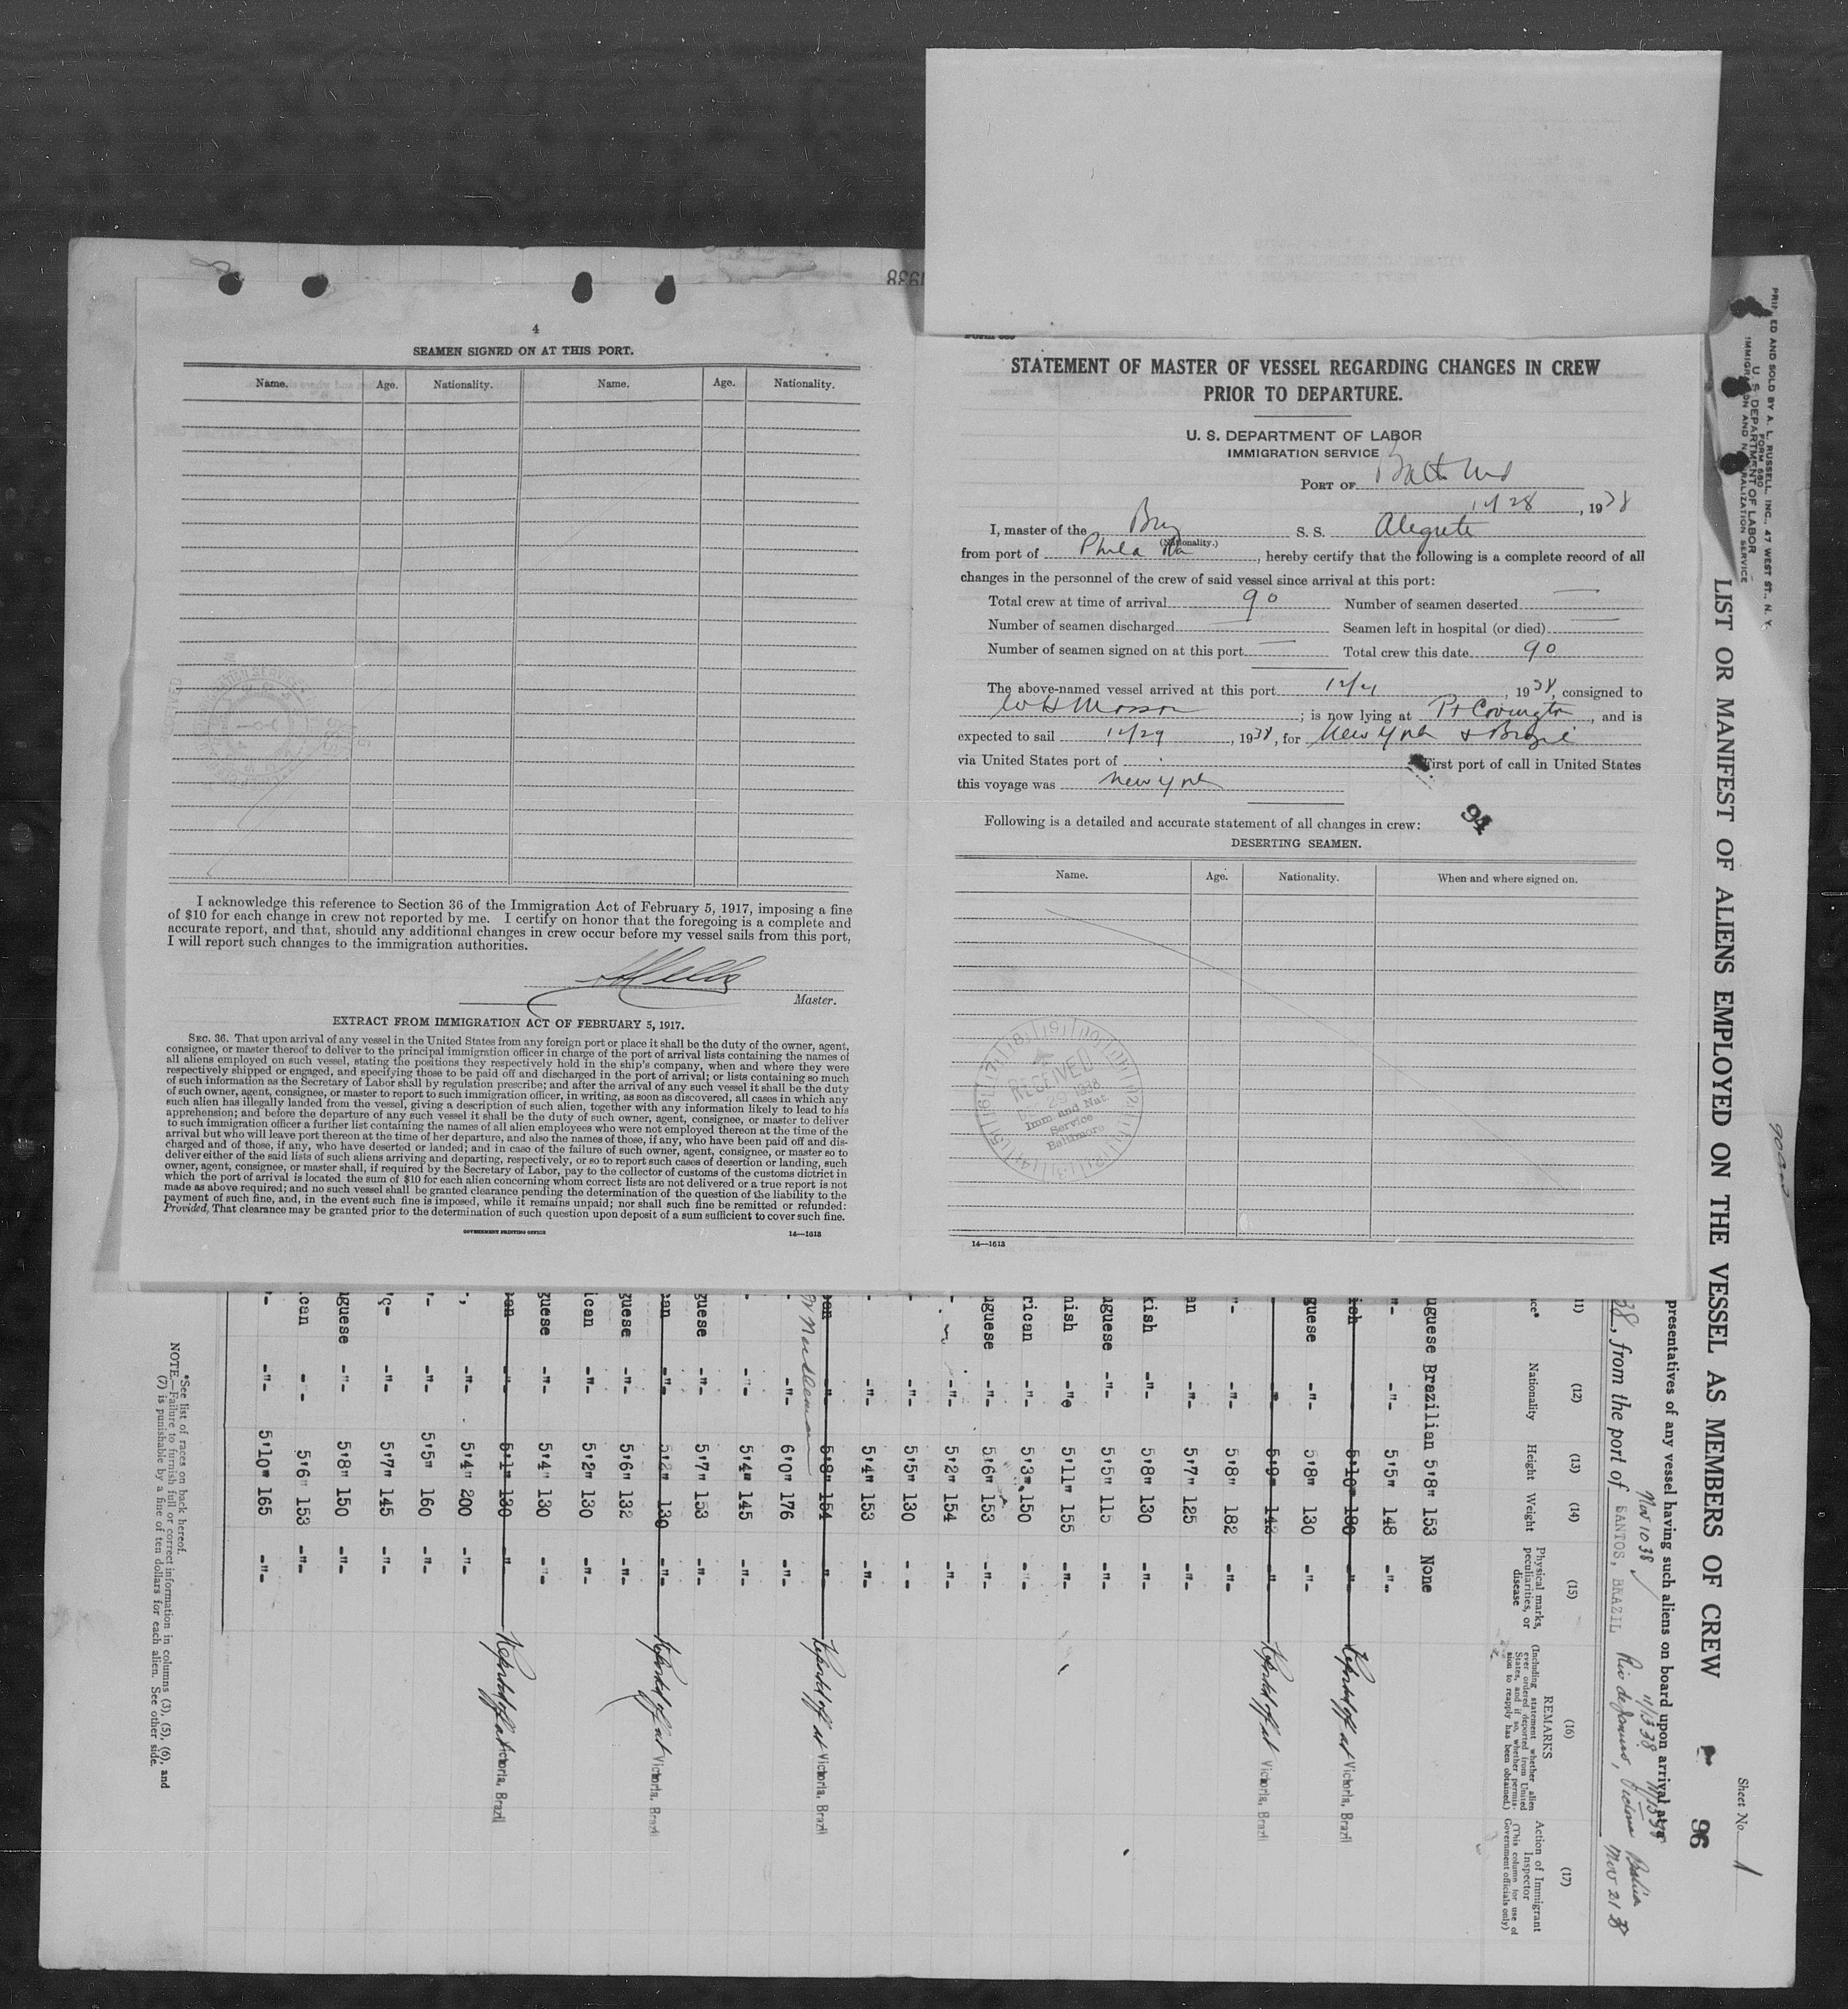 4
SEAMEN SIGNED ON AT THIS PORT.
Name. Age. Nationality. Name. Age. Nationality.
I acknowledge this reference to Section 36 of the Immigration Act of February 5, 1917, imposing a fine
of $10 for each change in crew not reported by me. I certify on honor that the foregoing is a complete and
accurate report, and that, should any additional changes in crew occur before my vessel sails from this port,
I will report such changes to the immigration authorities.
Master.
EXTRACT FROM IMMIGRATION ACT OF FEBRUARY 5, 1917.
SEC. 36. That upon arrival of any vessel in the United States from any foreign port or place it shall be the duty of the owner, agent,
consignee, or master thereof to deliver to the principal immigration officer in charge of the port of arrival lists containing the names of
all aliens employed on such vessel, stating the positions they respectively hold in the ship's company, when and where they were
respectively shipped or engaged, and specifying those to be paid off and discharged in the port of arrival; or lists containing so much
of such information as the Secretary of Labor shall by regulation prescribe; and after the arrival of any such vessel it shall be the duty
of such owner, agent, consignee, or master to report to such immigration officer, in writing, as soon as discovered, all cases in which any
such alien has illegally landed from the vessel, giving a description of such alien, together with any information likely to lead to his
apprehension; and before the departure of any such vessel it shall be the duty of such owner, agent, consignee, or master to deliver
to such immigration officer a further list containing the names of all alien employees who were not employed thereon at the time of the
arrival but who will leave port thereon at the time of her departure, and also the names of those, if any, who have been paid off and dis-
charged and of those, if any, who have deserted or landed; and in case of the failure of such owner, agent, consignee, or master so to
deliver either of the said lists of such aliens arriving and departing, respectively, or so to report such cases of desertion or landing, such
owner, agent, consignee, or master shall, if required by the Secretary of Labor, pay to the collector of customs of the customs district in
which the port of arrival is located the sum of $10 for each alien concerning whom correct lists are not delivered or a true report is not
made as above required; and no such vessel shall be granted clearance pending the determination of the question of the liability to the
payment of such fine, and, in the event such fine is imposed, while it remains unpaid; nor shall such fine be remitted or refunded:
Provided, That clearance may be granted prior to the determination of such question upon deposit of a sum sufficient to cover such fine.
GOVERNMENT PRINTING OFFICE 14—1613
STATEMENT OF MASTER OF VESSEL REGARDING CHANGES IN CREW
PRIOR TO DEPARTURE.
U. S. DEPARTMENT OF LABOR
IMMIGRATION SERVICE
PORT OF Balto Md
12/28, 1938
I, master of the Braz S. S. Alegrete
(Nationality.)
from port of Phila Pa, hereby certify that the following is a complete record of all
changes in the personnel of the crew of said vessel since arrival at this port:
Total crew at time of arrival 90 Number of seamen deserted —
Number of seamen discharged — Seamen left in hospital (or died) —
Number of seamen signed on at this port — Total crew this date 90
The above-named vessel arrived at this port , 1938, consigned to
; is now lying at Pt Covington, and is
expected to sail 12/29, 1938, for New York & Brazil
via United States port of First port of call in United States
this voyage was New York
94
Following is a detailed and accurate statement of all changes in crew:
DESERTING SEAMEN.
Name. Age. Nationality. When and where signed on.
RECEIVED
1938
Imm. and Nat.
Service
Baltimore
14—1613
PRINTED AND SOLD BY A. L. RUSSELL, INC., 47 WEST ST., N. Y.
FORM 680
U. S. DEPARTMENT OF LABOR
IMMIGRATION AND NATURALIZATION SERVICE
Sheet No. 1
LIST OR MANIFEST OF ALIENS EMPLOYED ON THE VESSEL AS MEMBERS OF CREW
96
presentatives of any vessel having such aliens on board upon arrival
Nov 10 38
38, from the port of SANTOS, BRAZIL Rio de Janeiro, Victoria Bahia Nov 21 38
(12) (13) (14) (15) (16) (17)
Nationality Height Weight Physical marks, peculiarities, or disease
REMARKS (Including statement whether alien ever ordered deported from United States, and if so, whether permission to reapply has been obtained.)
Action of Immigrant Inspector (This column for use of Government officials only)
uguese Brazilian 5'8" 153 None
-"- -"- 5'5" 148 -"-
ish 5'10" 180 -"- Victoria, Brazil
guese -"- 5'8" 130 -"-
-"- 5'9" 142 -"- Victoria, Brazil
-"- -"- 5'8" 182 -"-
an -"- 5'7" 125 -"-
kish -"- 5'8" 130 -"-
uguese -"- 5'5" 115 -"-
nish -"- 5'11" 155 -"-
rican -"- 5'3" 150 -"-
uguese -"- 5'6" 153 -"-
- -"- 5'2" 154 -"-
-"- 5'5" 130 - -
- -"- 5'4" 153 -"-
-"- 5'8" 154 -"- Victoria, Brazil
-"- 6'0" 176 -"-
- -"- 5'4" 145 -"-
guese -"- 5'7" 153 -"-
an -"- 5'2" 130 -"- Victoria, Brazil
guese -"- 5'6" 132 -"-
ican -"- 5'2" 130 -"-
guese -"- 5'4" 130 -"-
an -"- 5'1" 130 -"- Victoria, Brazil
-"- 5'4" 200 -"-
-"- 5'5" 160 -"-
-"- 5'7" 145 -"-
uguese -"- 5'8" 150 -"-
ican - - 5'6" 153 -"-
-"- 5'10" 165 -"-
*See list of races on back hereof.
NOTE.—Failure to furnish full or correct information in columns (3), (5), (6), and
(7) is punishable by a fine of ten dollars for each alien. See other side.